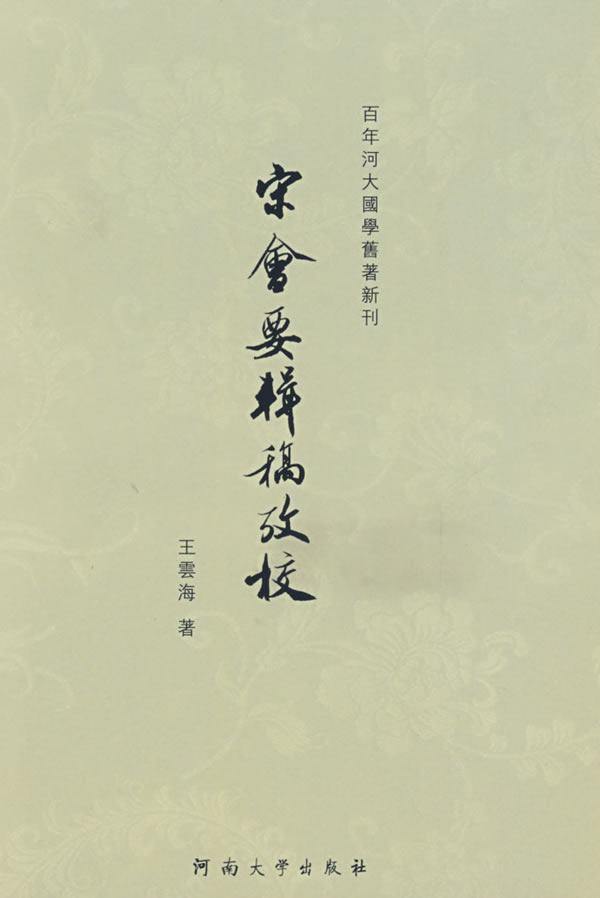 百年河大國學舊著新刊
宋會要輯稿攷校
王雲海 著
河南大学出版社